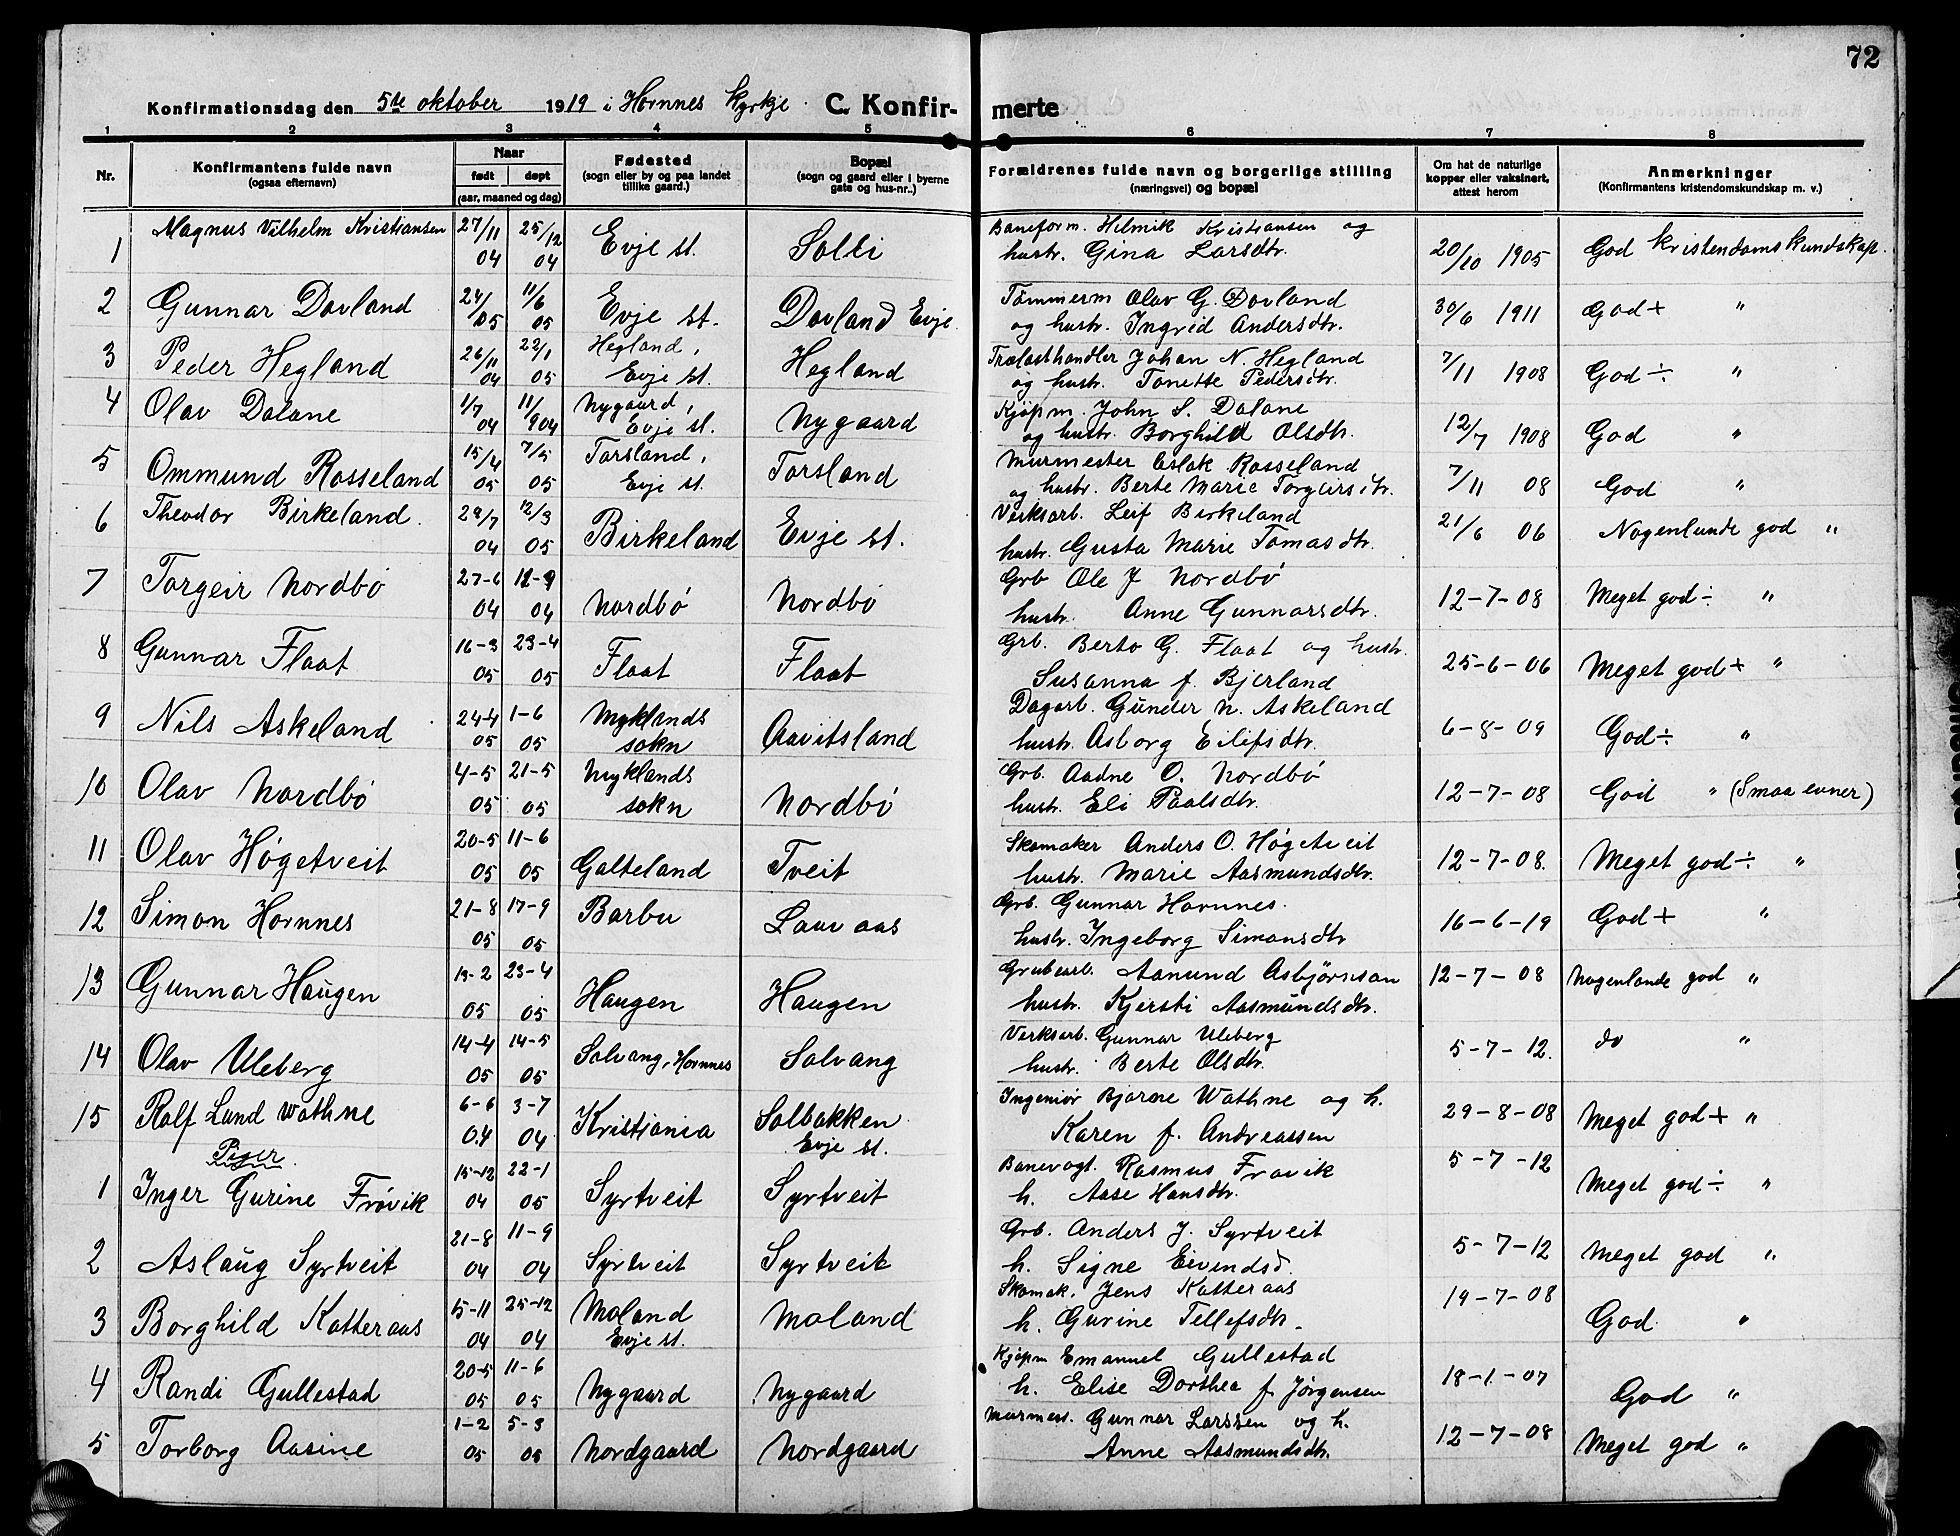 72
Konfirmationsdag den 5te oktober 1919 i Hornnes kyrkje. C. Konfir- merte
1 2 3 4 5 6 7 8
Nr. Konfirmantens fulde navn (ogsaa efternavn) Naar født døpt (aar, maaned og dag) Fødested (sogn eller by og paa landet tillike gaard.) Bopæl (sogn og gaard eller i byerne gate og hus-nr..) Forældrenes fulde navn og borgerlige stilling (næringsvei) og bopæl Om hat de naturlige kopper eller vaksinert, attest herom Anmerkninger (Konfirmantens kristendomskundskap m. v.)
1 Magnus Vilhelm Kristiansen 27/11 04 25/12 04 Evje st. Solli Baneform. Helmik Kristiansen og hustr. Gina Larsdtr. 20/10 1905 God kristendomskundskap.
2 Gunnar Dovland 24/ 05 11/6 05 Evje st. Dovland Evje. Tømmerm Olav G. Dovland og hustr. Ingrid Andersdtr. 30/6 1911 God + "
3 Peder Hegland 26/11 04 22/1 05 Hegland, Evje st. Hegland Trælasthandler Johan N. Hegland og hustr. Tonette Pedersdtr. 7/11 1908 God ÷ "
4 Olav Dalane 1/7 04 11/9 04 Nygaard, Evje st. Nygaard Kjøpm. John S. Dalane og hustr. Borghild Olsdtr. 12/7 1908 God "
5 Ommund Rosseland 15/4 05 7/5 05 Torsland, Evje st. Torsland Murmester Eslak Rosseland og hustr. Berte Marie Torgiersdtr. 7/11 08 God "
6 Theodor Birkeland. 29/7 04 12/3 05 Birkeland Evje st. Verksarb. Leif Birkeland hustr. Gusta Marie Tomasdtr. 21/6 06 Nogenlunde god "
7 Torgeir Nordbø 27-6 04 11-9 04 Nordbø Nordbø Grb Ole J Nordbø hustr. Anne Gunnarsdtr. 12-7-08 Meget god ÷ "
8 Gunnar Flaat 16-3 05 23-4 05 Flaat Flaat Grb. Berto G. Flaat og hustr. Susanna f. Bjerland 25-6-06 Meget god + "
9 Nils Askeland 24-4 05 1-6 05 Myklands sokn Aavitsland Dagarb. Gunder N. Askeland hustr. Asborg Eilefsdtr. 6-8-09 God ÷ "
10 Olav Nordbø 4-5 05 21-5 05 Myklands sokn Nordbø Grb. Aadne O. Nordbø hustr. Eli Paalsdtr. 12-7-08 God " (Smaa evner)
11 Olav Høgetveit 20-5 05 11-6 05 Galteland Tveit Skomaker Anders O. Høgetveit hustr. Marie Aasmundsdtr. 12-7-08. Meget god ÷ "
12 Simon Hornnes 21-8 05 17-9 05 Barbu Lauvaas Grb. Gunnar Hornnes. hustr. Ingeborg Simonsdtr 16-6-19 God + "
13 Gunnar Haugen 13-2 05 23-4 05 Haugen Haugen Grubearb. Aanund Asbjørnson hustr. Kjersti Aasmundsdtr. 12-7-08 Nogenlande god "
14 Olav Uleberg 14-4 05 14-5 05 Solvang, Hornnes Solvang Verksarb. Gunnar Uleberg hustr. Berte Olsdtr. 5-7-12. do "
15 Ralf Lund Wathne 6-6 04 3-7 04 Kristiania Solbakken Evje st. Ingeniør Bjarne Wathne og h. Karen f. Andreassen 29-8-08 Meget god + "
Piger.
1 Inger Gurine Frøvik 15-12 04 22-1 05 Syrtveit Syrtveit Banevogt. Rasmus Frøvik h. Aase Hansdtr. 5-7-12 Meget god ÷ "
2 Aslaug Syrtveit 21-8 04 11-9 04 Syrtveit Syrtveit Grb. Anders J. Syrtveit h. Signe Eivindsd. 5-7-12 Meget god "
3 Borghild Katteraas 15-11 04 25-12 04 Moland Evje st. Moland Skomak. Jens Katteraas h. Gurine Tellefsdtr. 19-7-08 God. "
4 Randi Gullestad 20-5 05 11-6 05 Nygaard Nygaard Kjøpm Emanuel Gullestad h. Elise Dorthea f. Jørgensen 18-1-07 God "
5 Torborg Aasine 1-2 05 5-3 05 Nordgaard Nordgaard Murmest. Gunnar Larssen og h. Anne Aasmundsdtr. 12-7-08 Meget god "